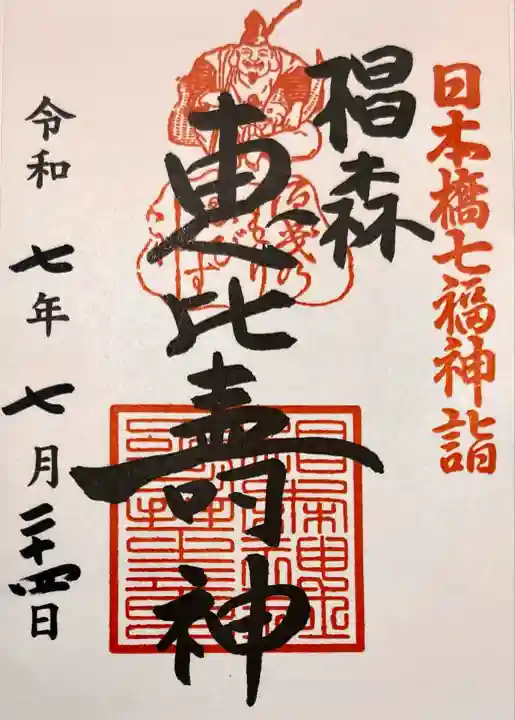 日本橋七福神詣
椙森
恵比壽神
令和 七年 七月 二十四日